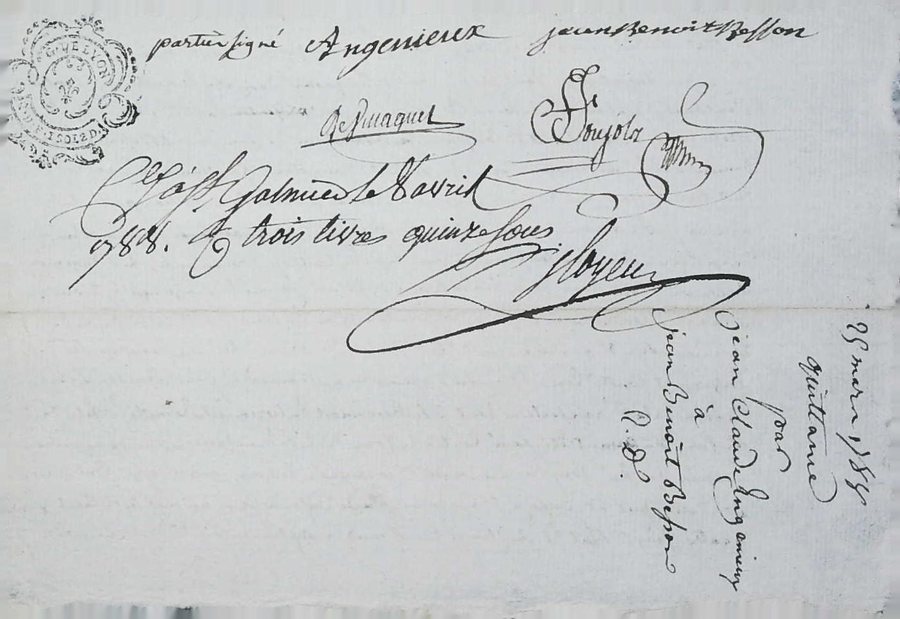 partie signé Angenieux jean Benoit Besson
Soujols
Clé à St Galmier le 8 avril
1788. R trois livres quinze sous
25 mars 1788
quittance
par
jean Claude Engenieux
à
jean Benoit Besson